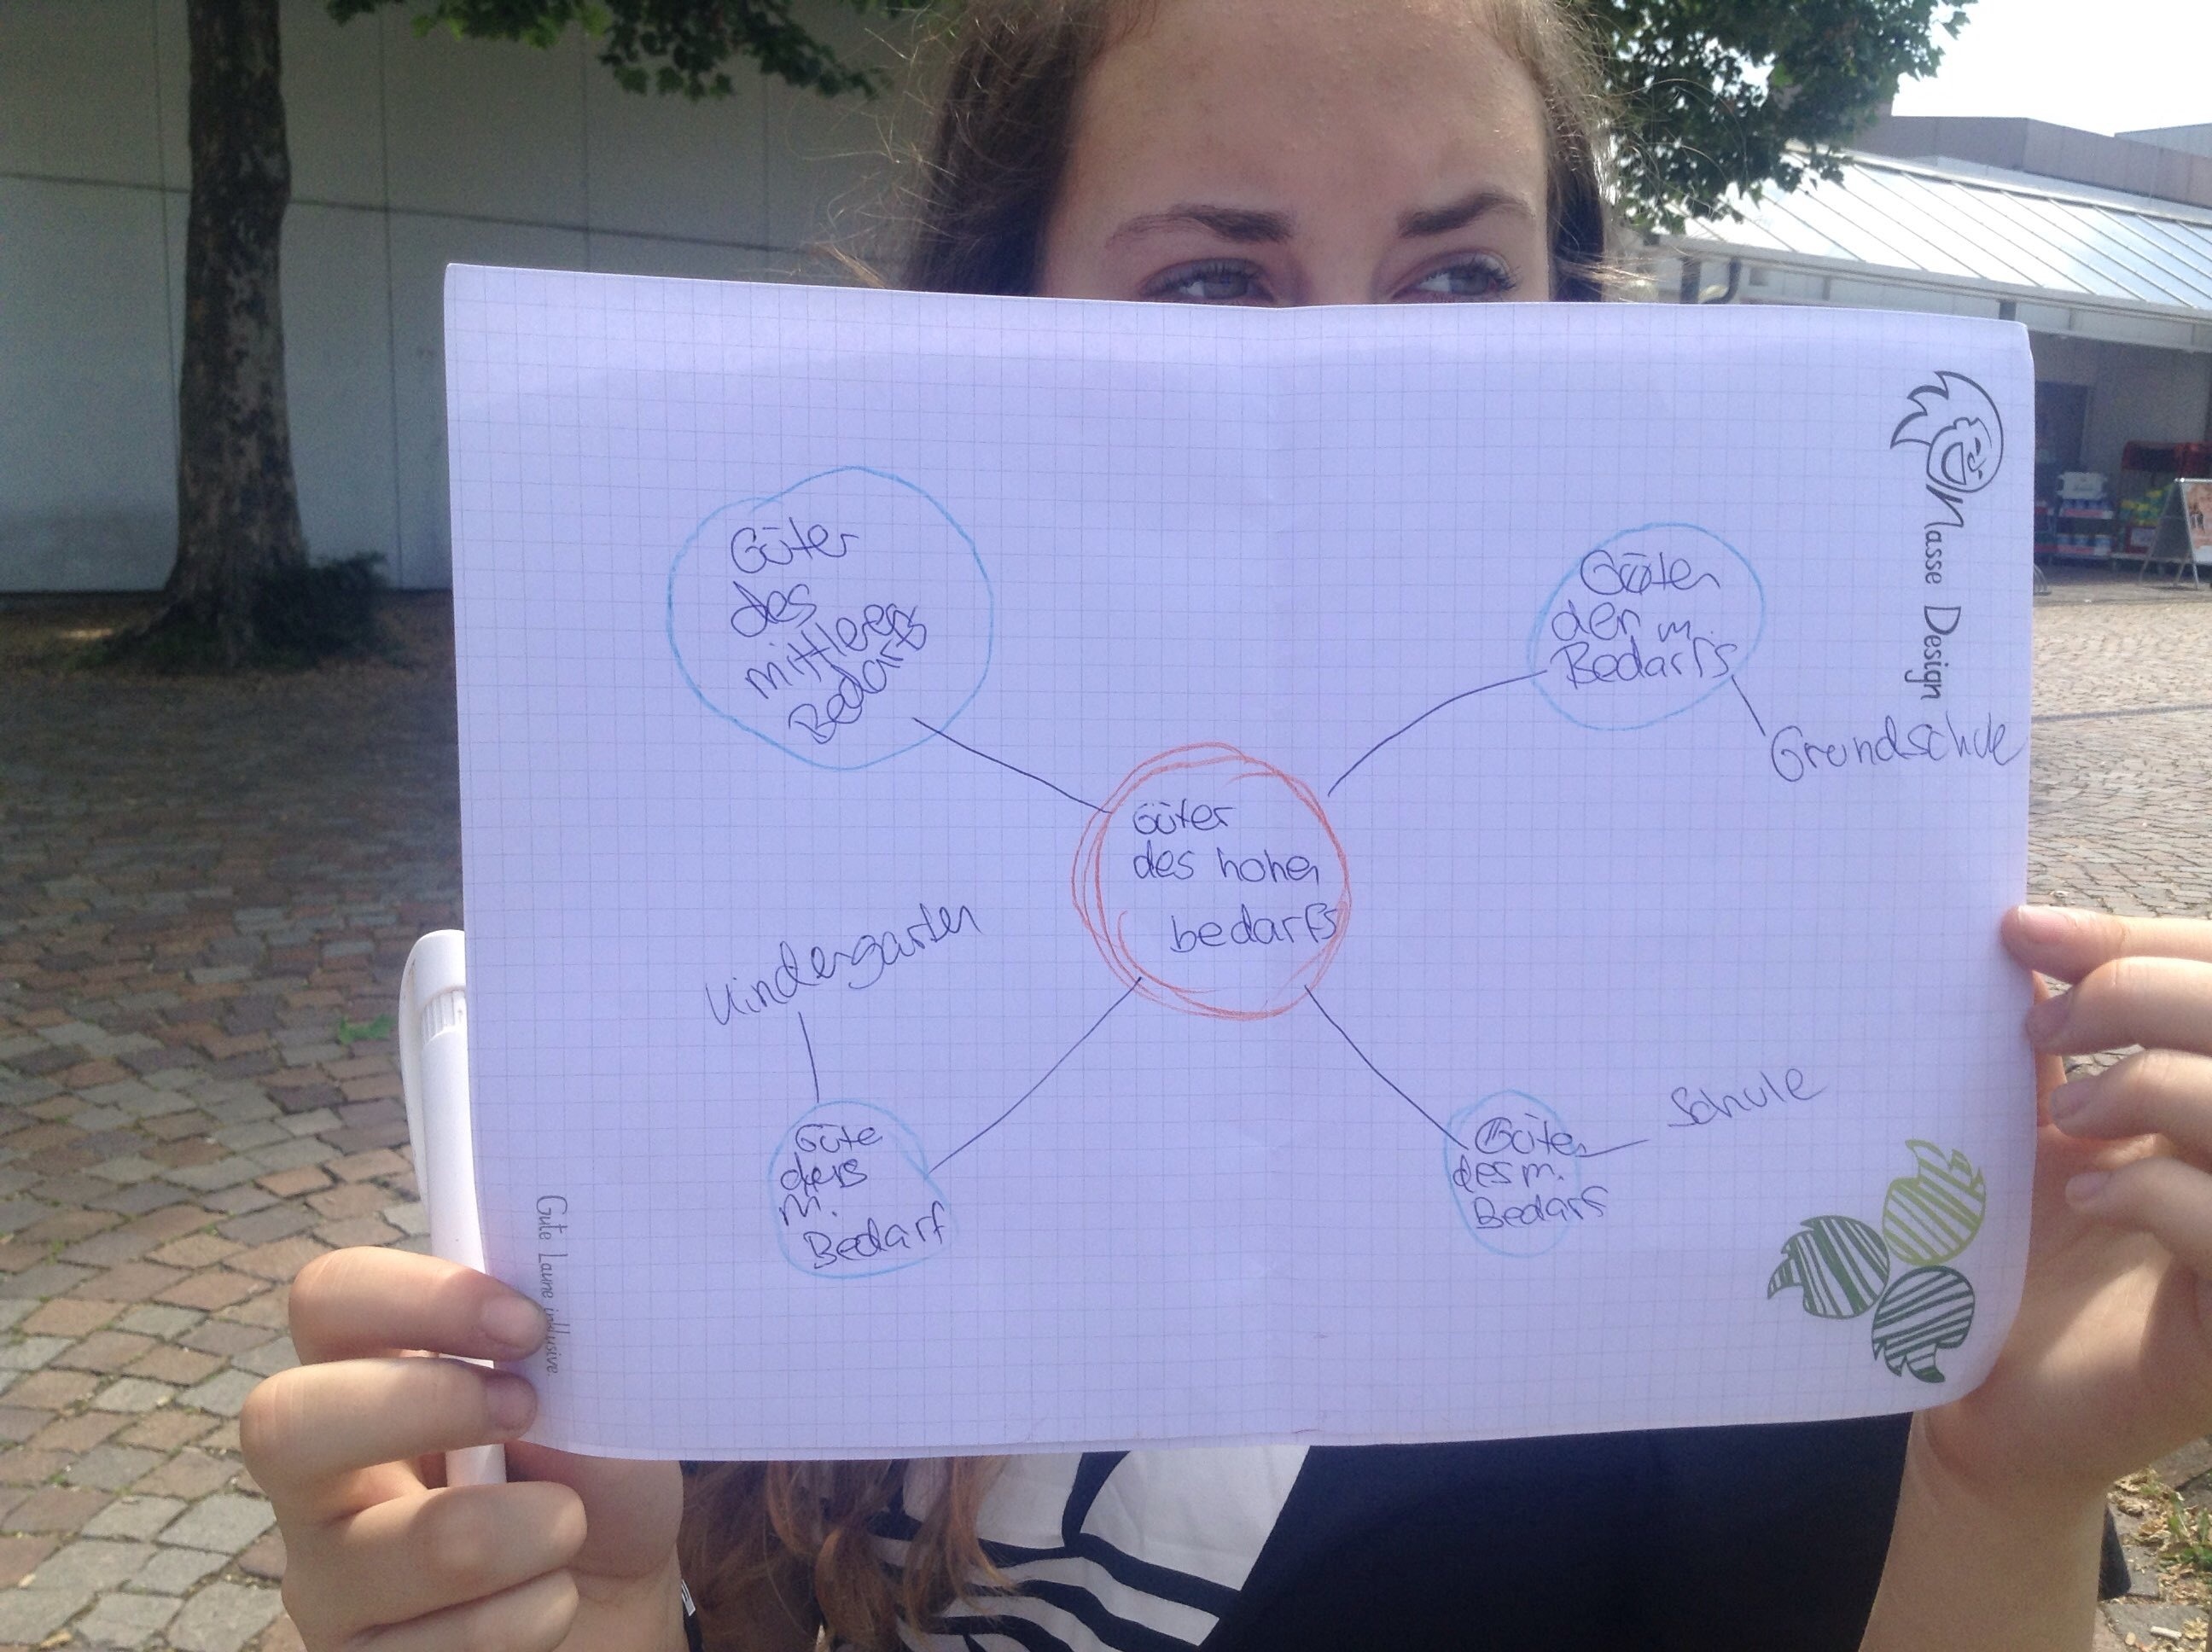 Güter
des
mittleren
Bedarfs
Güter
der m.
Bedarfs
Grundschule
Güter
des hohen
bedarfs
Kindergarten
Güte
ders
m.
Bedarf
Güter
des m.
Bedarf
Schule
Nasse Design
Gute Laune inklusive.